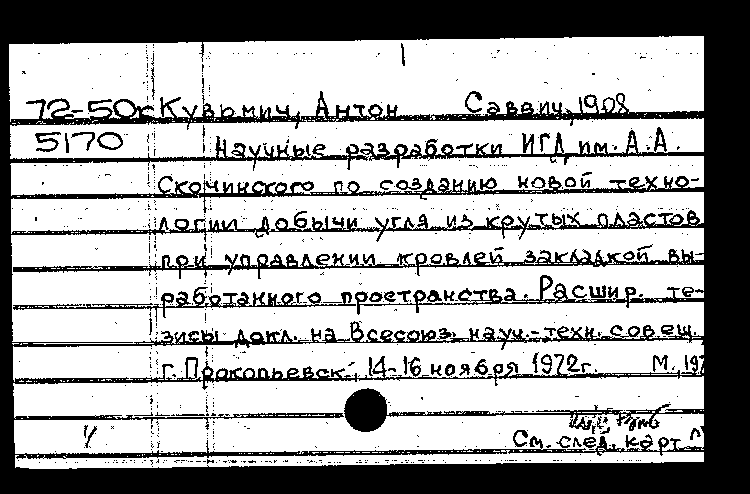 72-50к Кузьмич, Антон Саввич, 1908
5170 Научные разработки ИГД им. А.А.
Скочинского по созданию новой техно-
логии добычи угля из крутых пластов
при управлении кровлей закладкой вы-
работанного пространства. Расшир. те-
зисы докл. на Всесоюз. науч.-техн. совещ.
г. Прокопьевск, 14-16 ноября 1972г. М., 197
См. след. карт